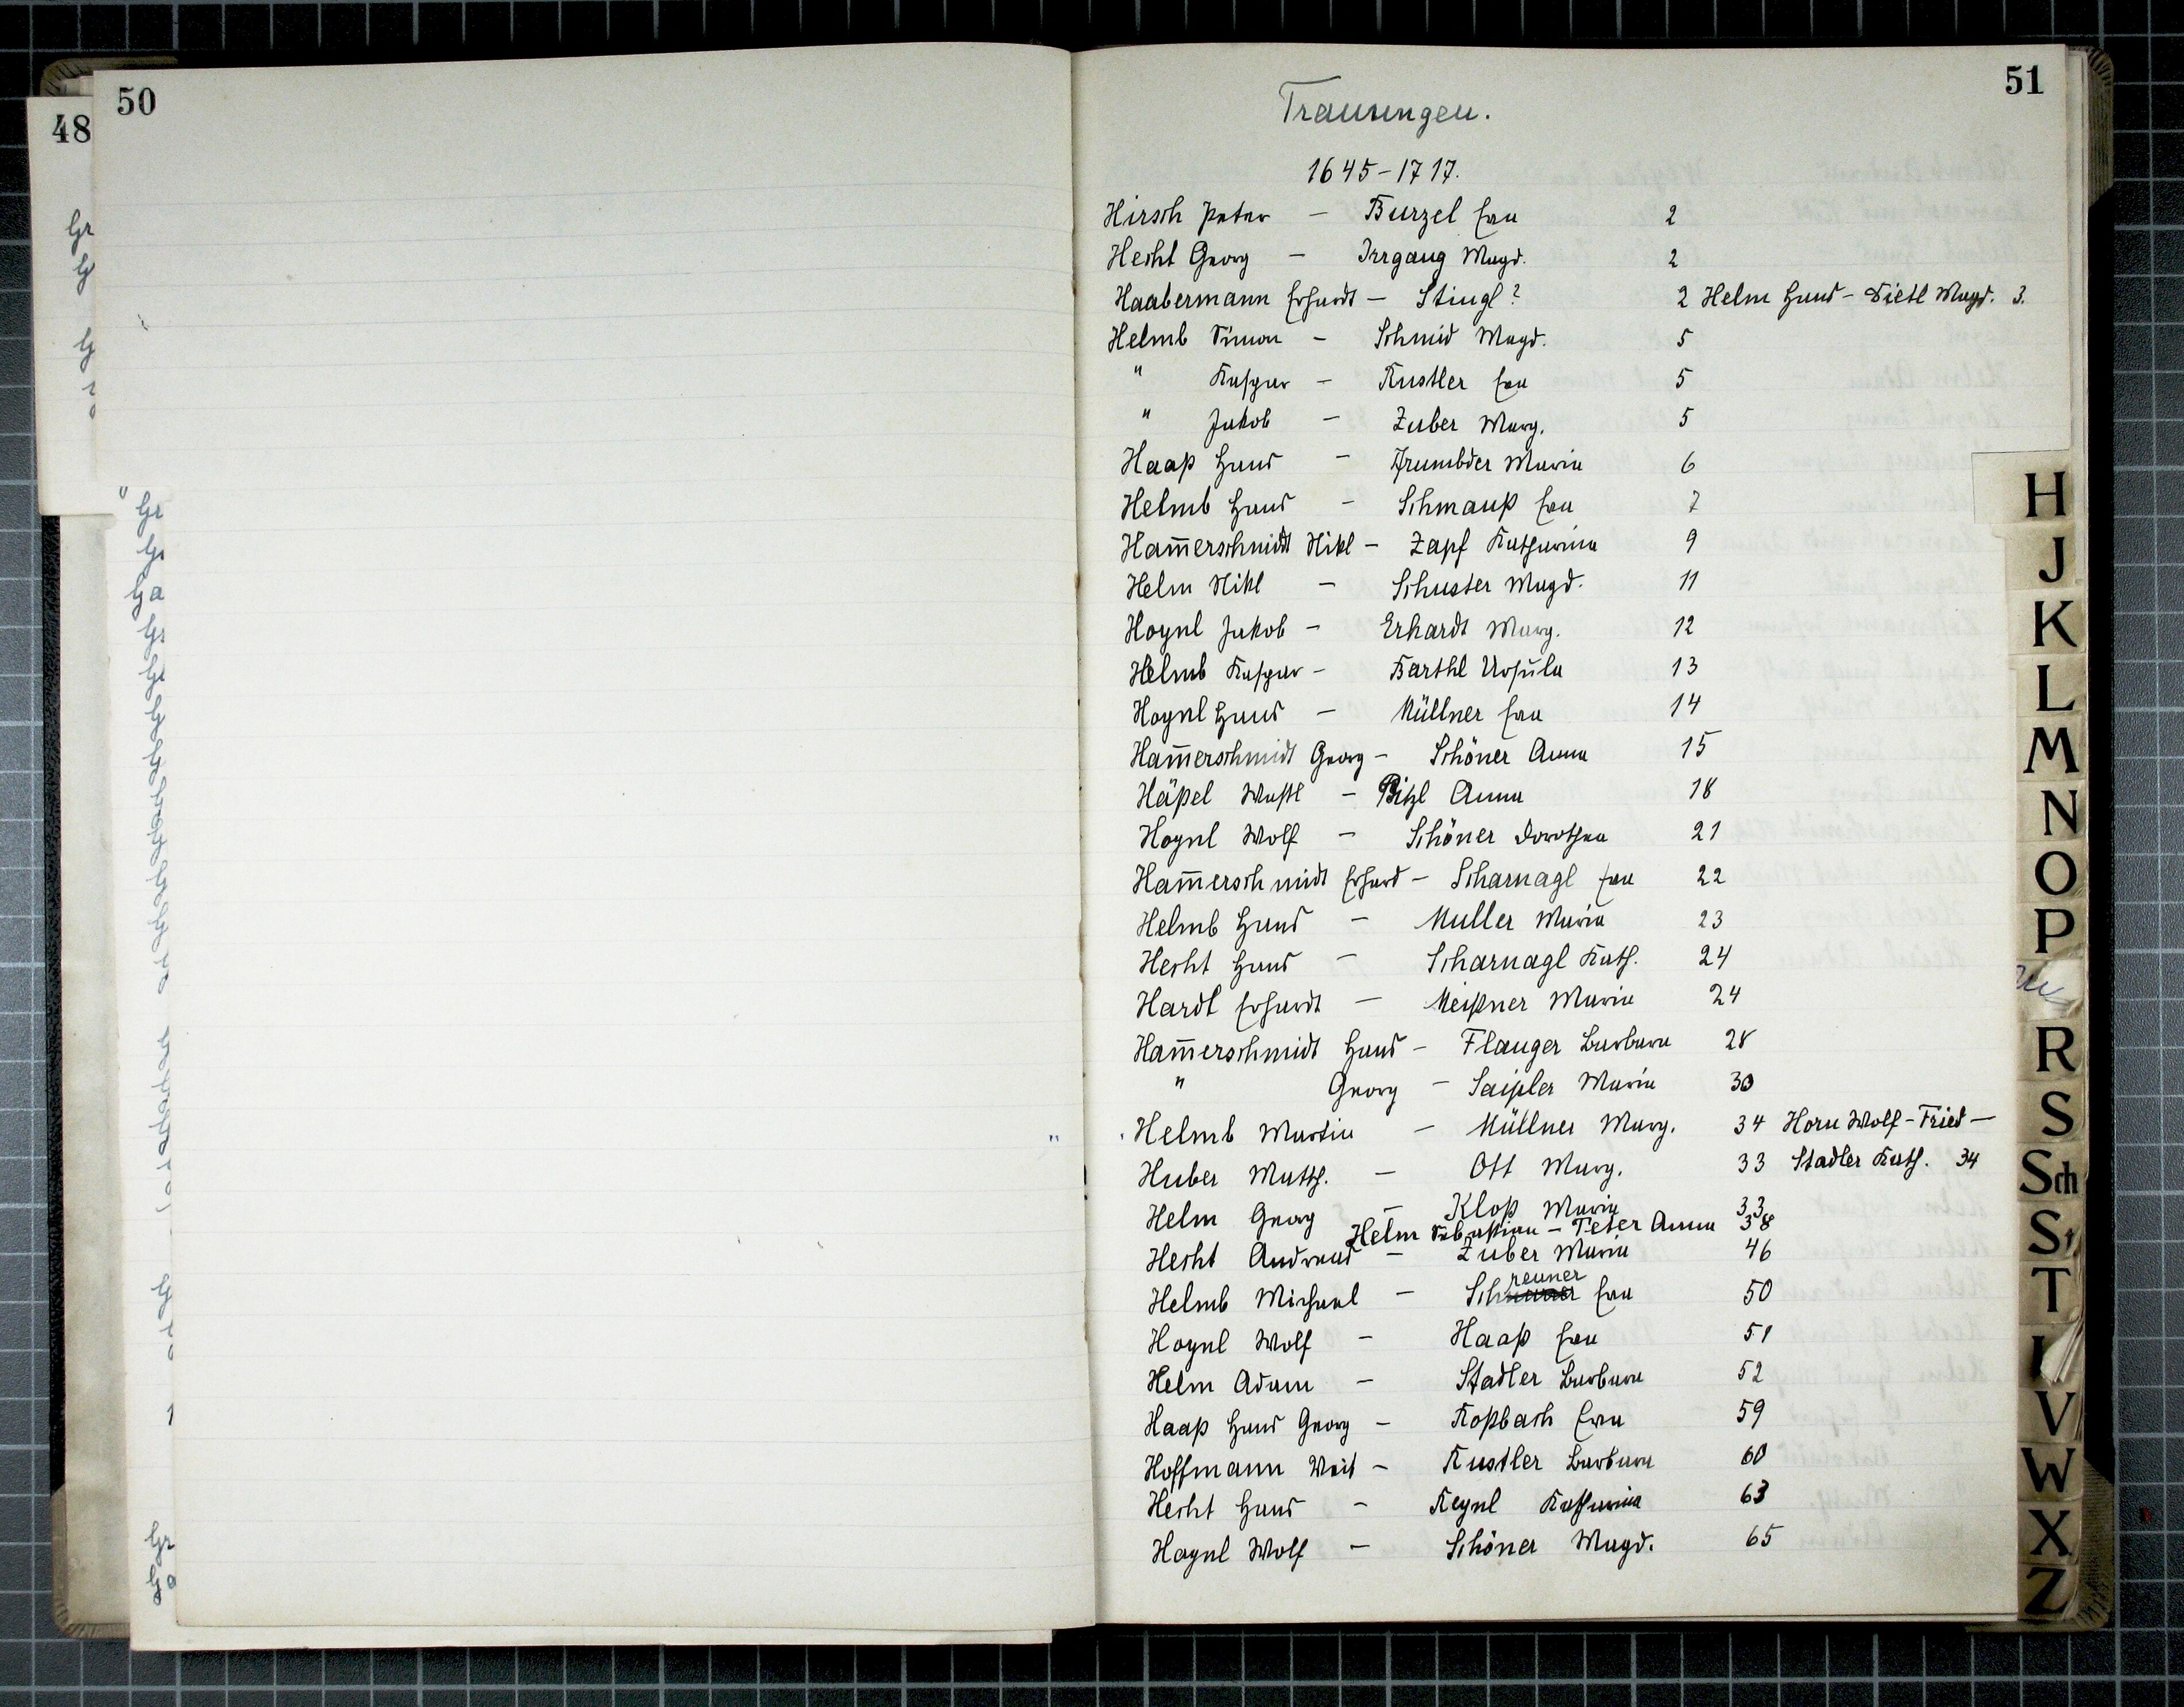 50
48
51
Trauungen.
1645-1717.
Hirsch Peter - Burzel Eva 2
Hecht Georg - Irrgang Magd. 2
Haabermann Erhardt - Stingl? 2 Helm Hans - Dietl Magd. 3.
Helmb Simon - Schmid Magd. 5
" Kaspar - Kustler Eva 5
" Jakob - Zuber Marg. 5
Haaß Hans - Frumbder Maria 6
Helmb Hans - Schmauß Eva 7
Ham̅erschmidt Nikl - Zapf Katharina 9
Helm Nikl - Schuster Magd. 11
Hoynl Jakob - Erhardt Marg. 12
Helmb Kaspar - Barthl Ursula 13
Hoynl Hans - Müllner Eva 14
Ham̅erschmidt Georg - Schöner Anna 15
Häßel Wastl - Bitzl Anna 18
Hoynl Wolf - Schöner Dorothea 21
Ham̅erschmidt Erhard - Scharnagl Eva 22
Helmb Hans - Müller Maria 23
Hecht Hans - Scharnagl Kath. 24
Hardt Erhardt - Meißner Maria 24
Ham̅erschmidt Hans - Flauger Barbara 28
" Georg - Saißler Maria 30
Helmb Martin - Müllner Marg. 34 Horn Wolf - Fried -
Huber Matth. - Ott Marg. 33 Stadler Kath. 34
Helm Georg - Kloß Maria 33
Helm Sebastian - Peter Anna 38
Hecht Andreas - Zuber Maria 46
Helmb Michael - Schreuner Eva 50
Hoynl Wolf - Haaß Eva 51
Helm Adam - Stadler Barbara 52
Haaß Hans Georg - Roßbach Eva 59
Hoffmann Veit - Kustler Barbara 60
Hecht Hans - Keynl Katharina 63
Hoynl Wolf - Schöner Magd. 65
H
J
K
L
M
N
O
P
R
S
Sch
St
T
V
W
X
Z